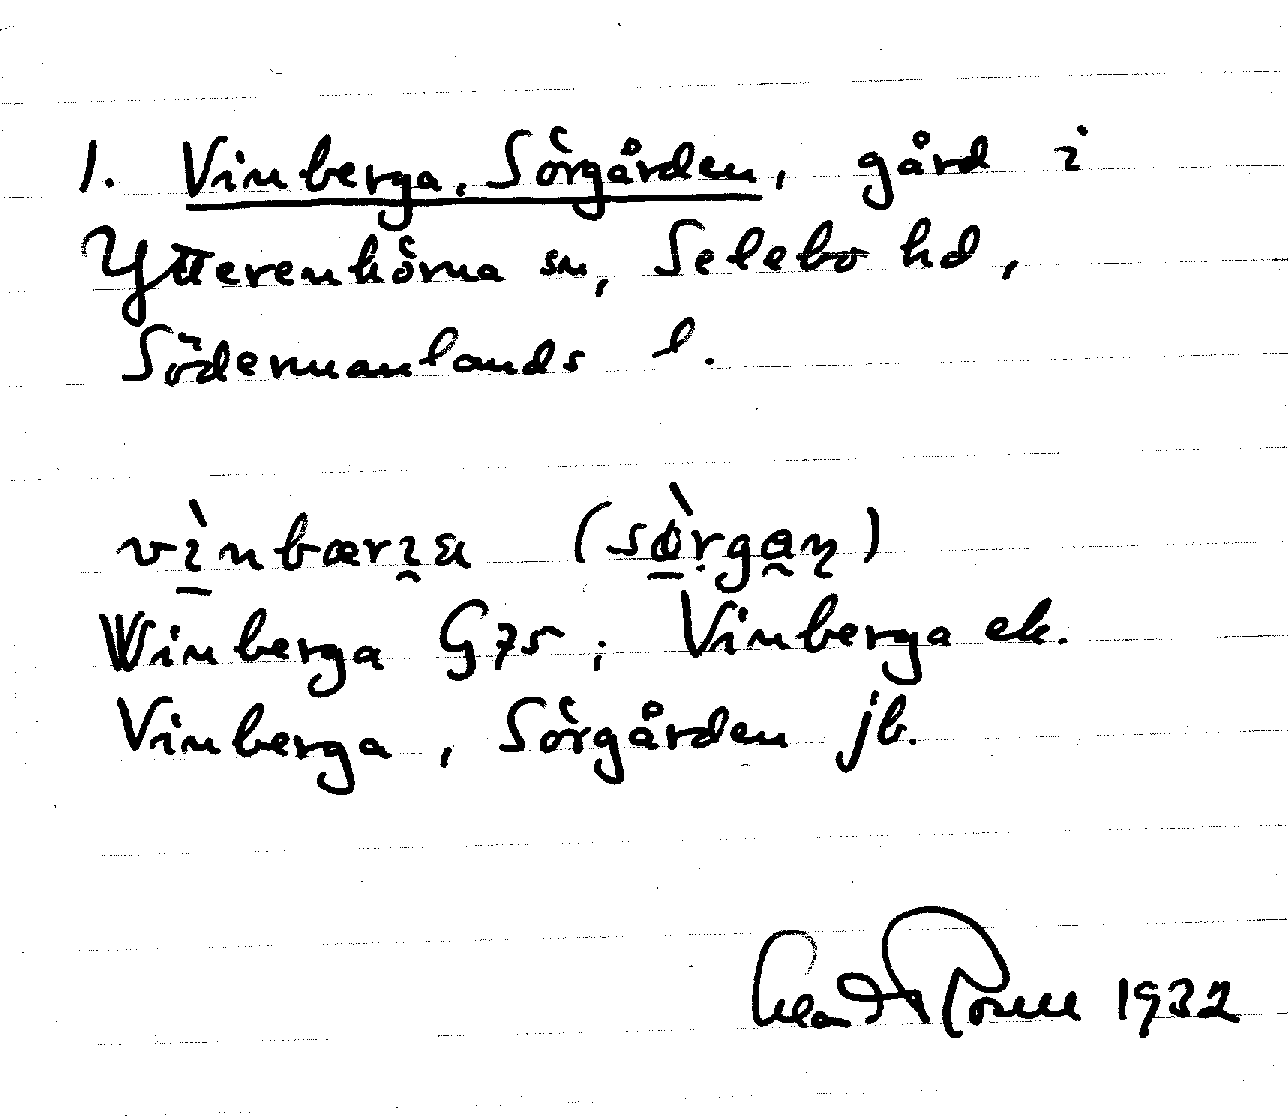 1. Vinberga, Sörgården, gård i
Ytterenhörna sn, Selebo hd,
Södermanlands l.
Winberga G75; Vinberga ek.
Vinberga, Sörgården jb.
1932